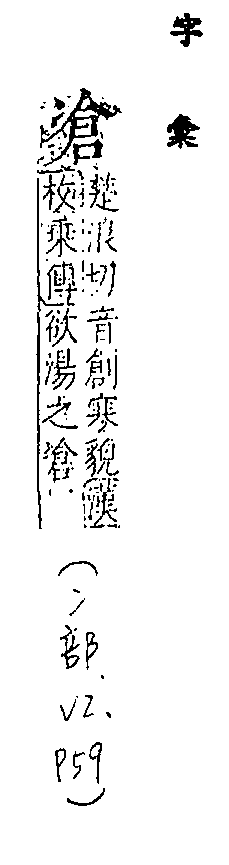 字彙
凔
楚浪切音創寒貌漢
枚乘傳欲湯之凔
(冫部.
VI.
P59)